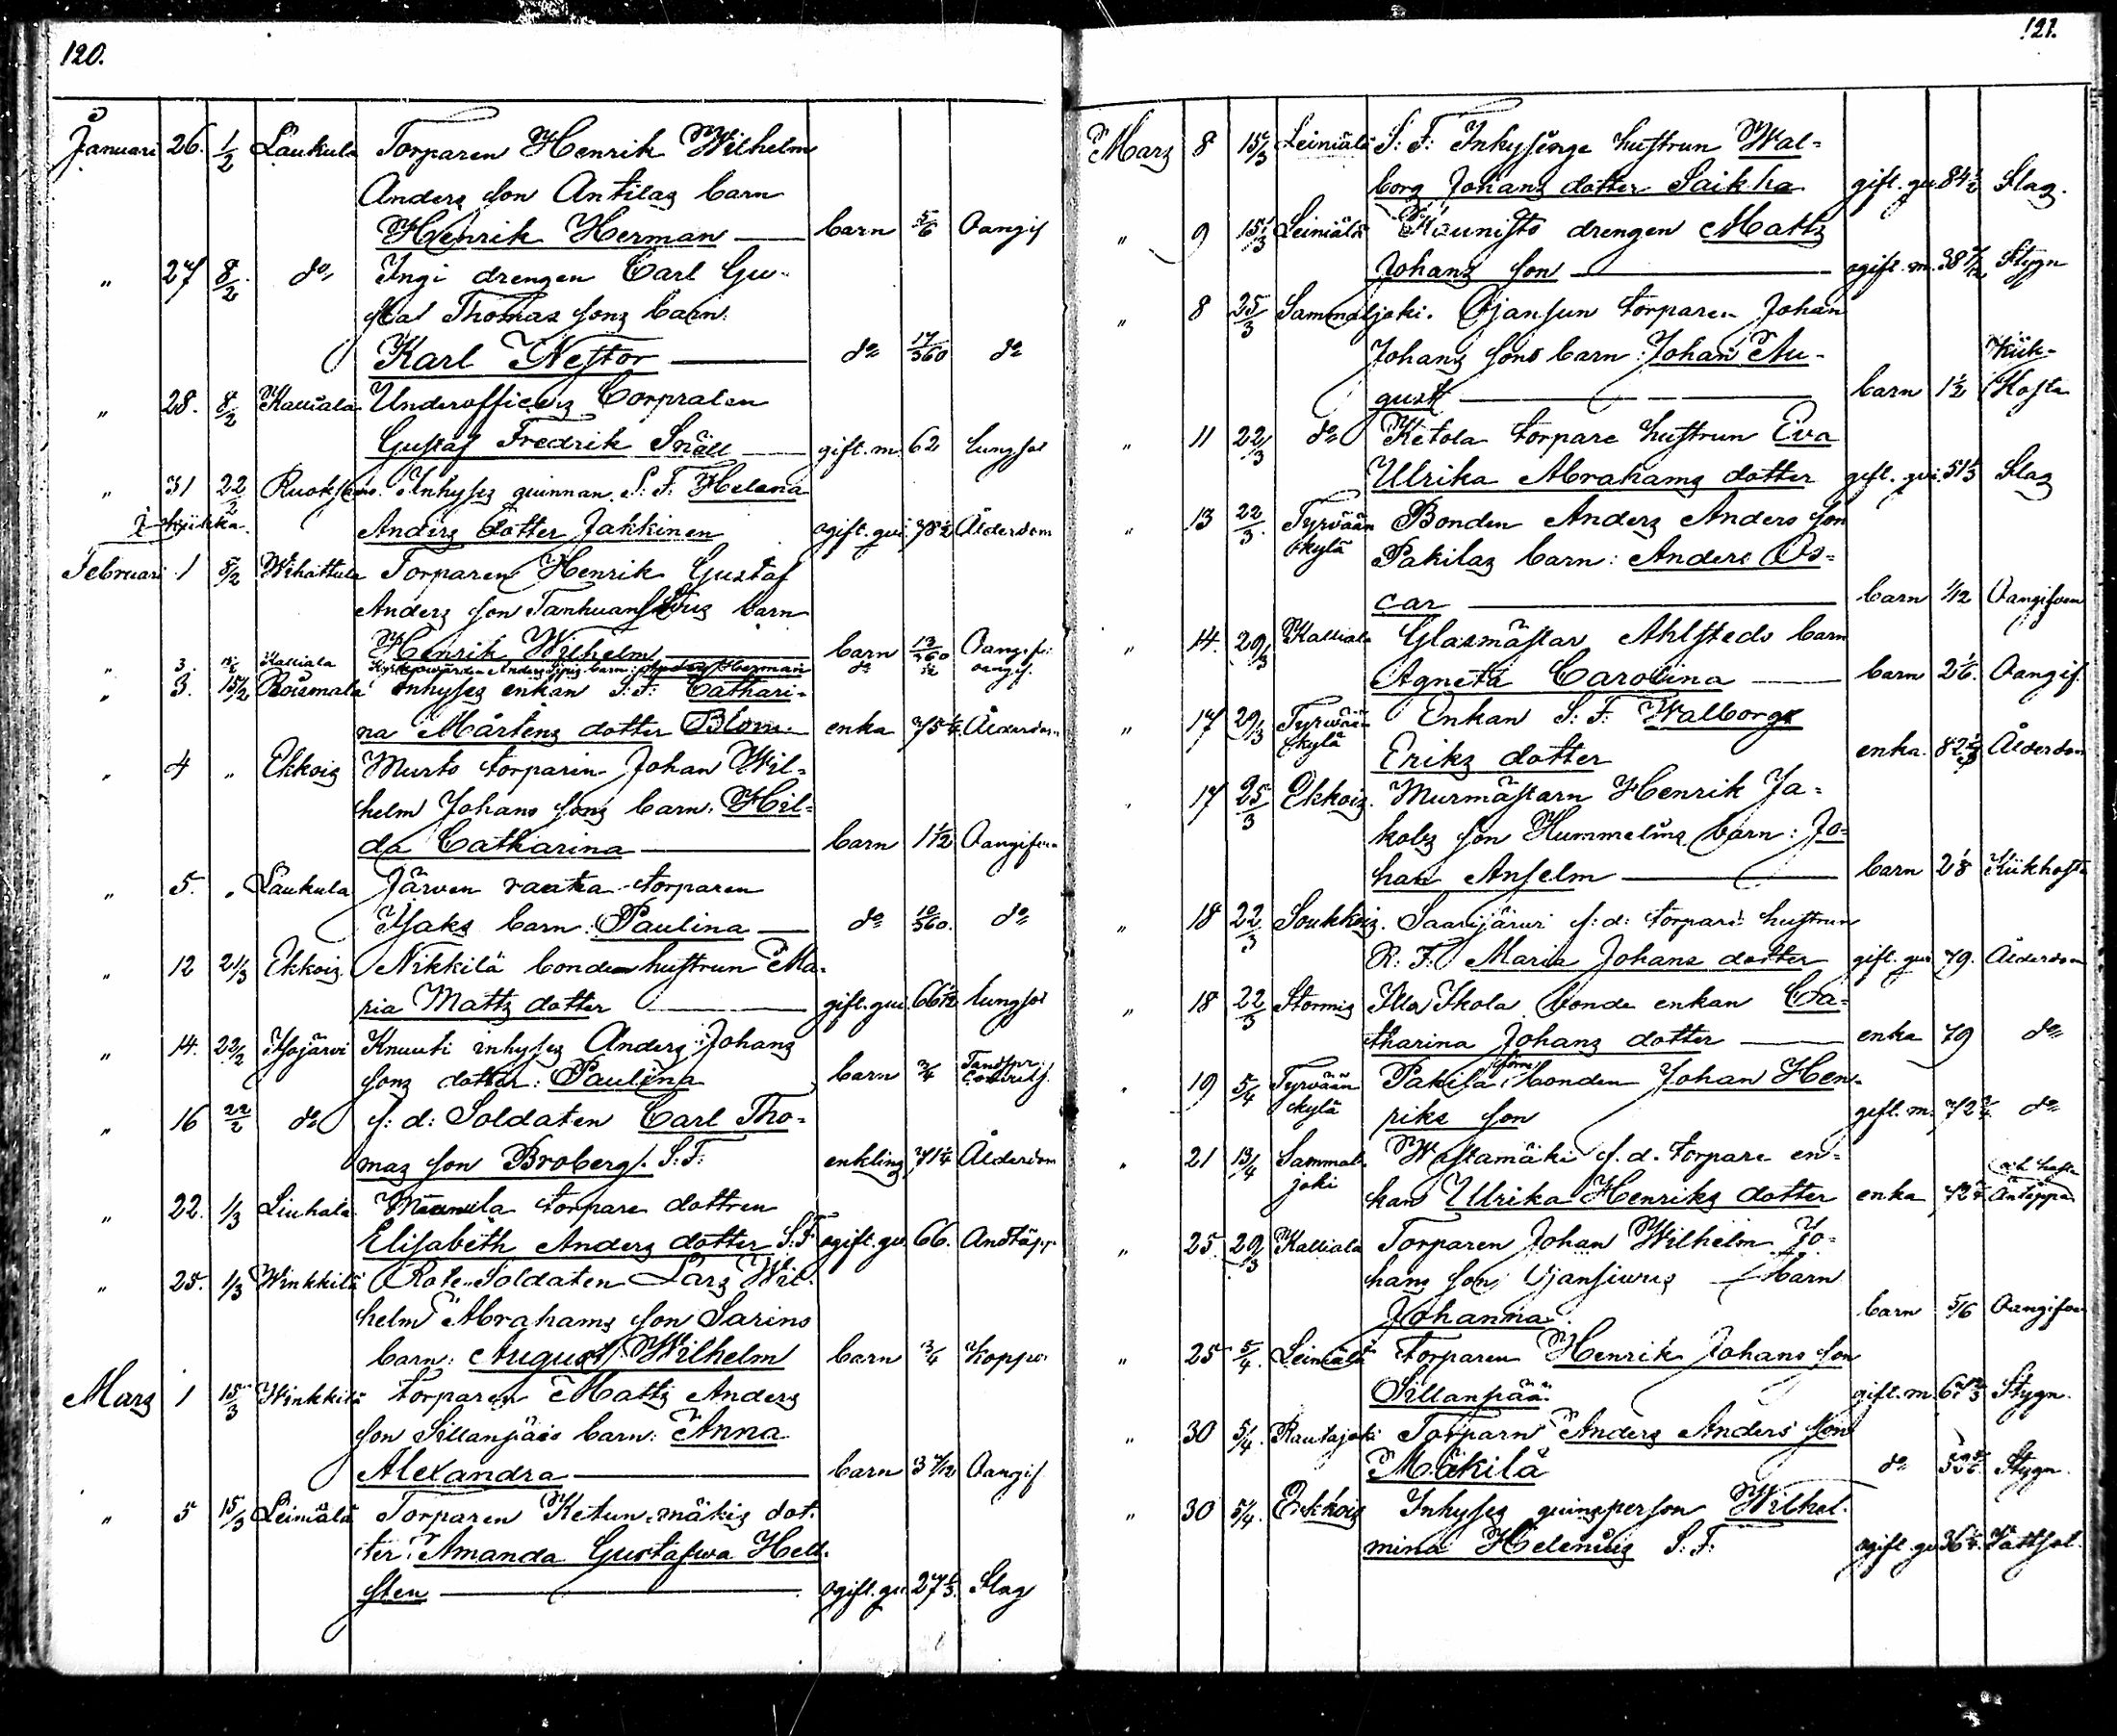 120.
Januari 26. 1/2 Laukula Torparen Henrik Wilhelm
Anders son Antilas barn
Henrik Herman barn 5/6 Oangif
" 27 8/2 do Ingi drengen Carl Gu-
staf Thomas sons barn:
Karl Nestor do 17/360 do
" 28. 8/2 Kalliala Underofficers Corpralen
Gustaf Fredrik Snäll gift. m. 62 lungsot
" 31 22/2 Inhyses quinnan S: F: Helena
Anders dotter Jakkinen ogift. qui. 78 1/2 Ålderdom
Februari 1 8/2 Wihattula Torparen Henrik Gustaf
Anders son barn
Henrik Wilhelm barn 13/360 Oangif:
" 3. Kalliala Anders barn: Herman do oangif.
" 3. 15/2 Roismala Inhyses enkan S: F: Cathari-
na Mårtens dotter Blom enka 75 1/4 Ålderdom
" 4 " Ekkois Murto torparen Johan Wil-
helm Johans sons barn: Hil-
da Catharina barn 1 1/2 Oangifven
" 5. " Laukula Järven ranta torparen
Isaks barn: Paulina do 10/360. do
" 12 21/3 Ekkois Nikkilä bonde hustrun Ma-
ria Matts dotter gift. qui. 66 1/2 lungsot
" 14. 22/2 Illojärvi Knuuti inhyses Anders Johans
sons dotter: Paulina barn 3/4
" 16 22/2 do f: d: Soldaten Carl Tho-
mas son Broberg. S: F: enkling 71 1/4 Ålderdom
" 22. 1/3 Liuhala torpare dottren
Elisabeth Anders dotter S: F: ogift. qui 66. Andtäpp
" 25. 1/3 Winkkilä Rote Soldaten Lars Wil-
helm Abrahams son Sarins
barn: August Wilhelm barn 3/4 Koppor
Mars 1 15/3 Winkkilä Torparen Matts Anders
son Sillanpääs barn: Anna
Alexandra barn 3 7/12 Oangif
" 5 15/3 Leiniälä Torparen Ketun-mäkis dot-
ter: Amanda Gustafwa Hell-
sten ogift. qu. 27 1/3. Slag
121.
Mars 8 15/3 Leiniälä S: F: Inhysings hustrun Wal-
borg Johans dotter Saikka gift. qu. 84 1/2 Slag.
" 9 15/3 Leiniälä Kaunisto drengen Matts
Johans son ogift. m. 38 7/12 Stygn
" 8 25/3 Sammaljoki. Ojansun torparen Johan
Johans sons barn: Johan Au-
gust barn 1 1/2 Kik-
hosta
" 11 22/3 do Ketola torpare hustrun Eva
Ulrika Abrahams dotter gift. qui. 51 1/3 Slag
" 13 22/3. Tyrvään Bonden Anders Anders son
kylä Pakilas barn: Anders Os-
car barn 1/12 Oangifven
" 14. 29/3 Kalliala Glasmästar Ahlsteds barn
Agneta Carolina barn 2 1/6. Oangif.
" 17 29/3 Tyrvään Enkan S: F: Walborg
kylä Eriks dotter enka. 82 Ålderdom
" 17 25/3 Ekkois. Murmästarn Henrik Ja-
kobs son Hummelins barn: Jo-
han Anselm barn 2 1/8 Kikhosta
" 18 22/3 Soukkois. Saarijärvi f: d: torpare hustrun
R: F: Maria Johans dotter gift. qui 79. Ålderdom
" 18 22/3 Stormis Illa Ikola bonde enkan Ca-
tharina Johans dotter enka 79 do
" 19 5/4 Tyrvään Pakila förre bonden Johan Hen-
kylä riks son gift. m. 72 3/4 do
" 21 13/4 Sammal- Wastamäki f. d. torpare en-
joki kan Ulrika Henriks dotter enka 72 Antäppa
och hosta
" 25. 29/3 Kalliala Torparen Johan Wilhelm Jo-
hans son barn
Johanna. barn 5/6 Oangifven
" 25 5/4. Leiniälä Torparen Henrik Johans son
Sillanpää. gift. m. Stygn.
" 30 5/4. Rautajoki Torparn Anders Anders son
Mäkilä do Stygn.
" 30 5/4. Ekkois Inhyses quinsperson Wilhel-
mina Helenius S: F: ogift. qu. 36 1/4. Vattsot.